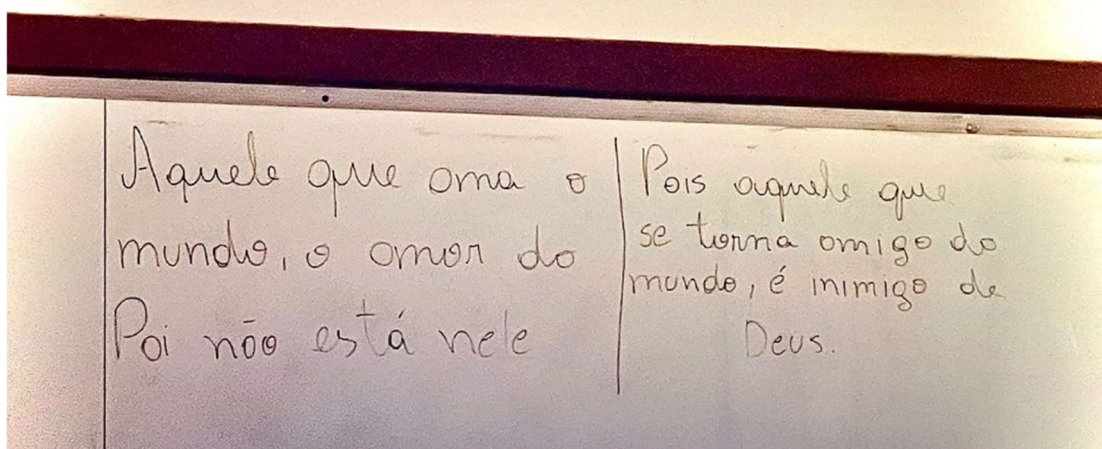 Aquele que ama o
mundo, o amor do
Pai não está nele
Pois aquele que
se torna amigo do
mundo, é inimigo de
Deus.